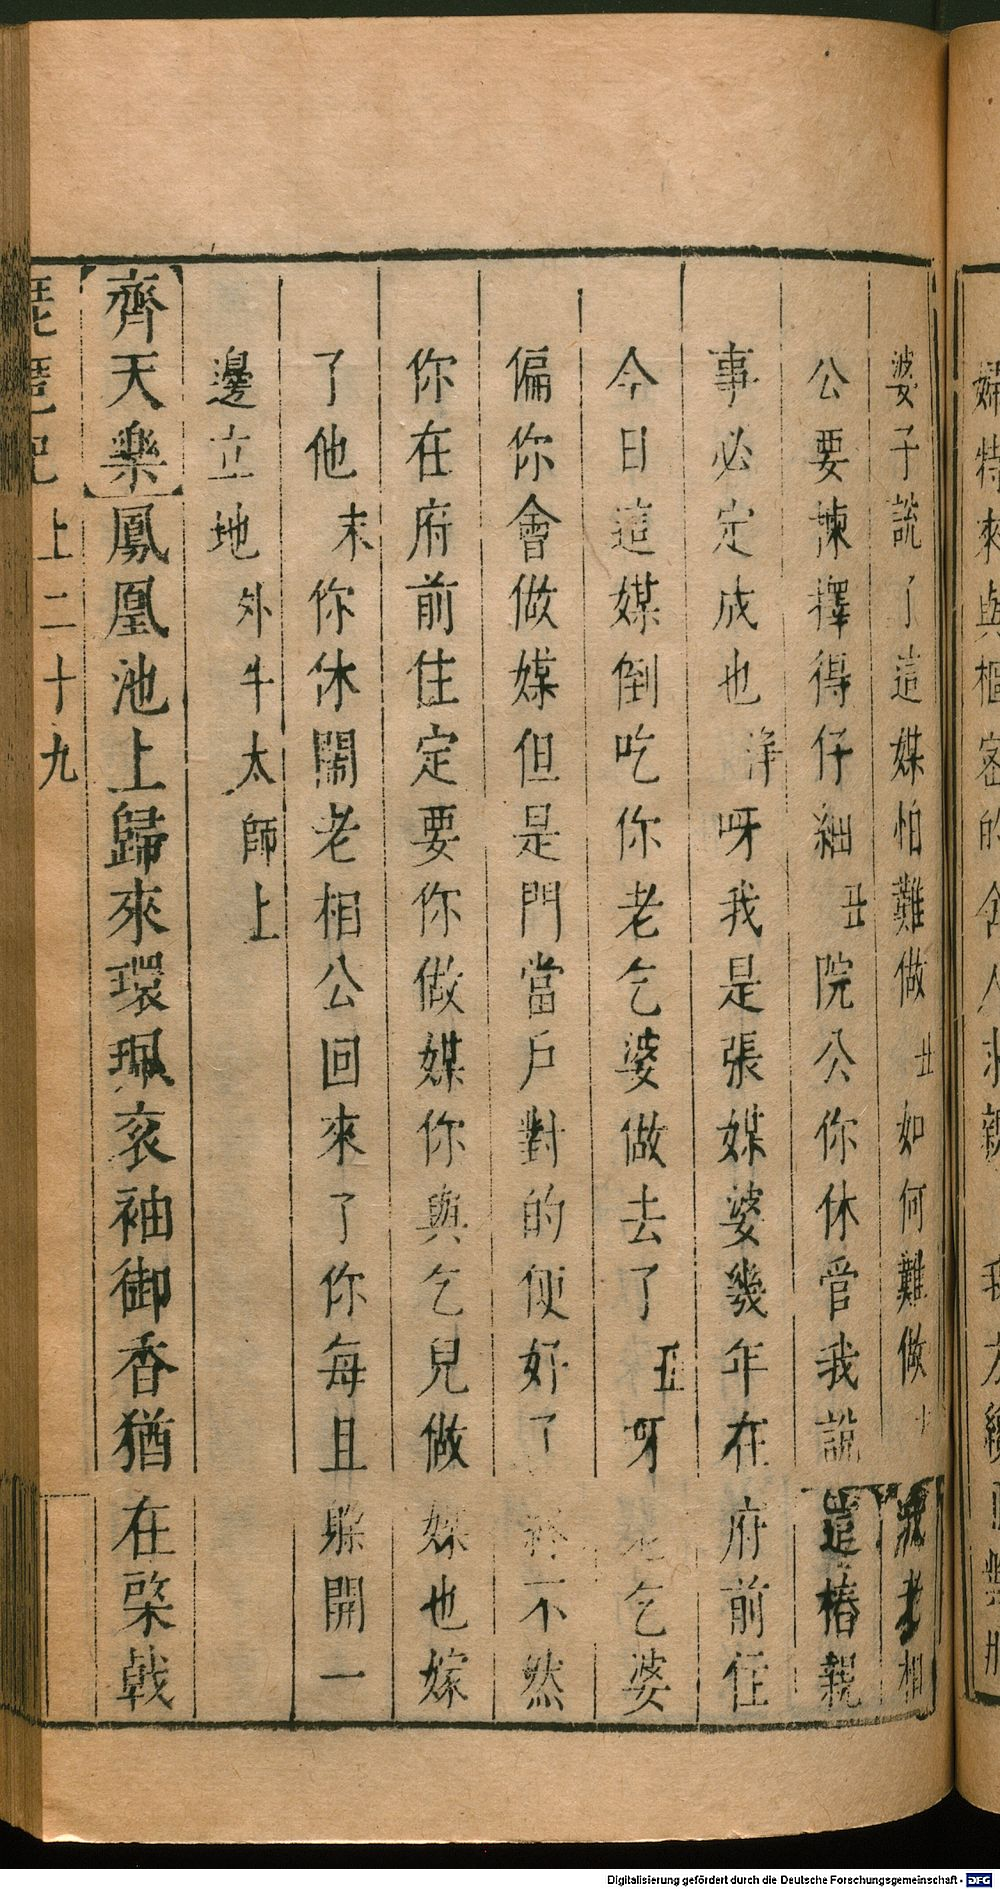 婆子說了這媒怕難做丑如何難做 我老相
公要揀擇得仔細丑院公你休管我說這樁親
事必定成也淨呀我是張媒婆幾年在府前住
今日這媒倒吃你老乞婆做去了丑呀 乞婆
偏你會做媒但是門當戶對的便好了 不然
你在府前住定要你做媒你與乞兒做媒也嫁
了他末你休鬧老相公回來了你每且躲開一
邊立地外牛太師上
【齊天樂】鳳凰池上歸來環珮衮袖御香猶在棨戟
琵琶記 上二十九
婦特來與樞密的舍人求親 我
Digitalisierung gefördert durch die Deutsche Forschungsgemeinschaft - DFG